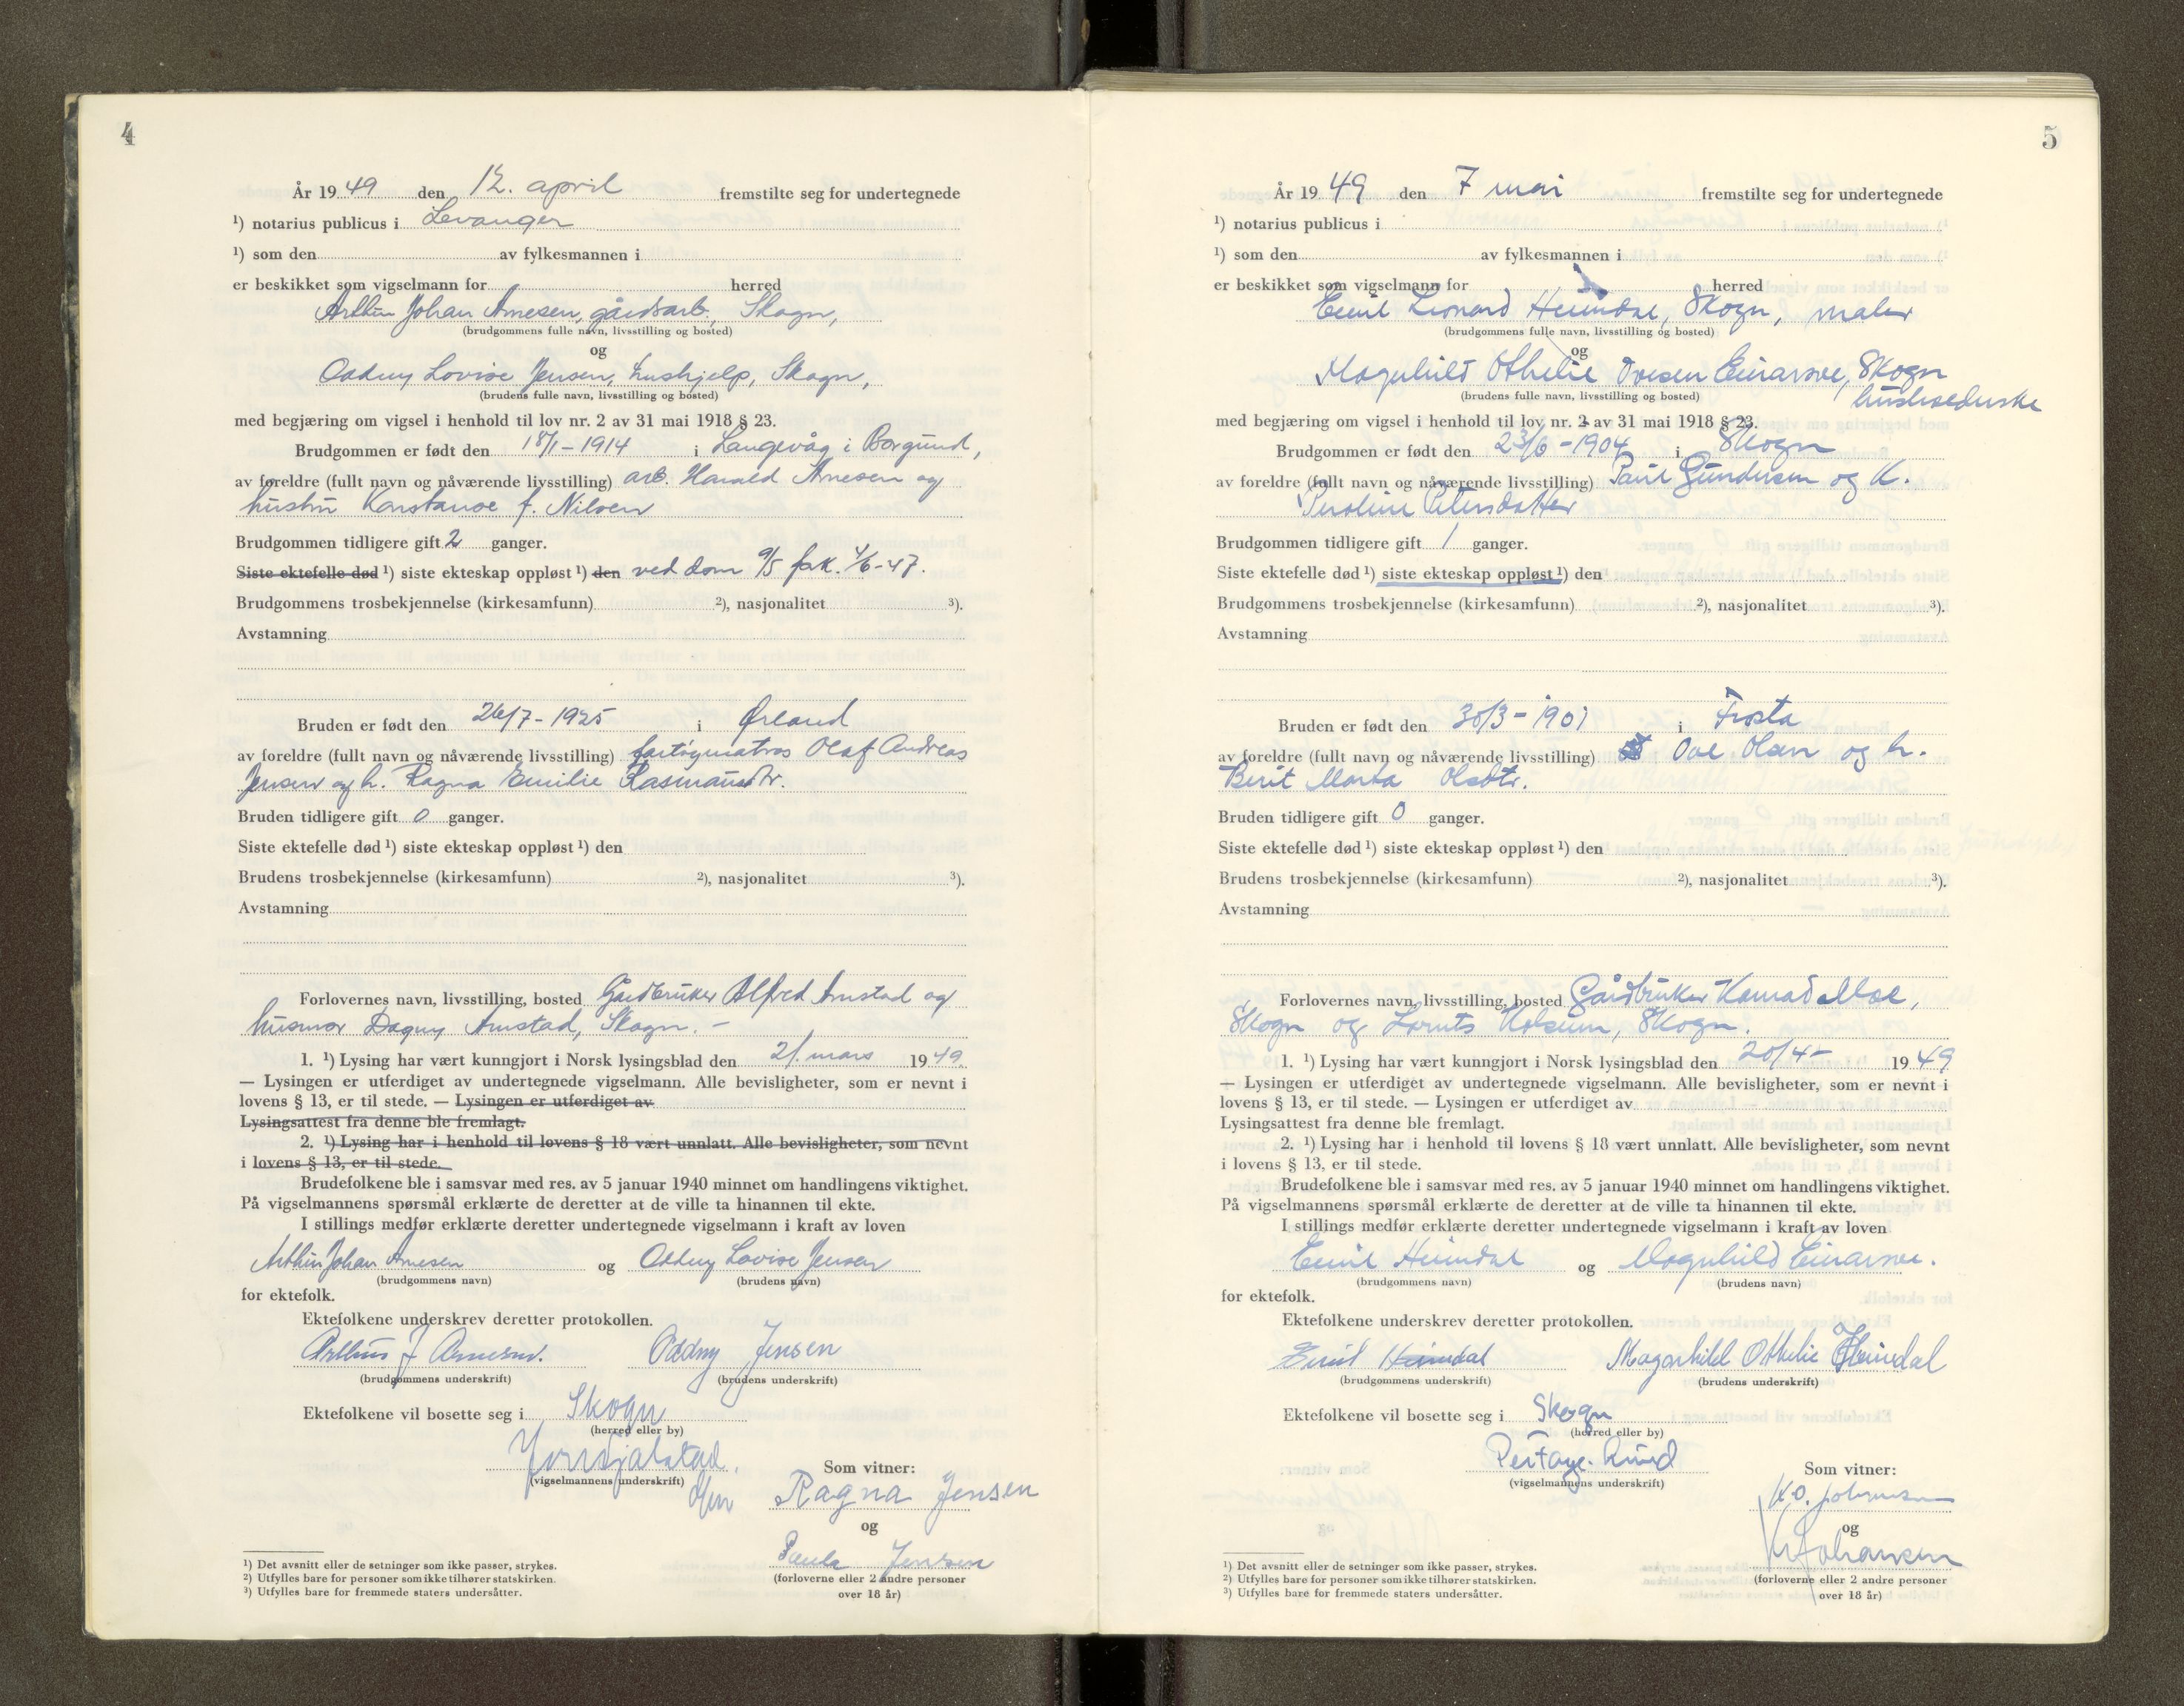 4
År 1949 den 12. april fremstilte seg for undertegnede
¹) notarius publicus i Levanger
¹) som den av fylkesmannen i
er beskikket som vigselmann for herred
Arthur Johan Arnesen, gårdsarb., Skogn,
(brudgommens fulle navn, livsstilling og bosted)
og
Oddny Lovise Jensen, hushjelp, Skogn,
(brudens fulle navn, livsstilling og bosted)
med begjæring om vigsel i henhold til lov nr. 2 av 31 mai 1918 § 23.
Brudgommen er født den 18/1-1914 i Langevåg i Borgund,
av foreldre (fullt navn og nåværende livsstilling) arb. Harald Arnesen og
hustru Konstanse f. Nilsen
Brudgommen tidligere gift 2 ganger.
Siste ektefelle død ¹) siste ekteskap oppløst ¹) den ved dom 9/5 fork. 4/6-47.
Brudgommens trosbekjennelse (kirkesamfunn) ²), nasjonalitet ³).
Avstamning
Bruden er født den 26/7-1925 i Ørland
av foreldre (fullt navn og nåværende livsstilling) fartøymatros Olaf Andreas
Jensen og h. Ragna Emilie Rasmusdtr.
Bruden tidligere gift 0 ganger.
Siste ektefelle død ¹) siste ekteskap oppløst ¹) den
Brudens trosbekjennelse (kirkesamfunn) ²), nasjonalitet ³).
Avstamning
Forlovernes navn, livsstilling, bosted Gårdbruker Alfred Arnstad og
husmor Dagny Arnstad, Skogn. -
1. ¹) Lysing har vært kunngjort i Norsk lysingsblad den 21. mars 1949.
— Lysingen er utferdiget av undertegnede vigselmann. Alle bevisligheter, som er nevnt i
lovens § 13, er til stede. — Lysingen er utferdiget av
Lysingsattest fra denne ble fremlagt.
2. ¹) Lysing har i henhold til lovens § 18 vært unnlatt. Alle bevisligheter, som nevnt
i lovens § 13, er til stede.
Brudefolkene ble i samsvar med res. av 5 januar 1940 minnet om handlingens viktighet.
På vigselmannens spørsmål erklærte de deretter at de ville ta hinannen til ekte.
I stillings medfør erklærte deretter undertegnede vigselmann i kraft av loven
Arthur Johan Arnesen og Oddny Lovise Jensen
(brudgommens navn) (brudens navn)
for ektefolk.
Ektefolkene underskrev deretter protokollen.
Arthur J Arnesen. Oddny Jensen
(brudgommens underskrift) (brudens underskrift)
Ektefolkene vil bosette seg i Skogn
(herred eller by)
(vigselmannens underskrift)
Som vitner:
Ragna Jensen
og
Paula Jensen
(forloverne eller 2 andre personer
over 18 år)
¹) Det avsnitt eller de setninger som ikke passer, strykes.
²) Utfylles bare for personer som ikke tilhører statskirken.
³) Utfylles bare for fremmede staters undersåtter.
5
År 1949 den 7 mai fremstilte seg for undertegnede
¹) notarius publicus i
¹) som den av fylkesmannen i
er beskikket som vigselmann for herred
Emil Leonard Heimdal, Skogn, maler
(brudgommens fulle navn, livsstilling og bosted)
og
Magnhild Othelie Ovesen Einarsve, Skogn
husholderske
(brudens fulle navn, livsstilling og bosted)
med begjæring om vigsel i henhold til lov nr. 2 av 31 mai 1918 § 23.
Brudgommen er født den 23/6-1904 i Skogn
av foreldre (fullt navn og nåværende livsstilling) Paul Gundersen og h.
Peroline Petersdatter
Brudgommen tidligere gift 1 ganger.
Siste ektefelle død ¹) siste ekteskap oppløst ¹) den
Brudgommens trosbekjennelse (kirkesamfunn) ²), nasjonalitet ³).
Avstamning
Bruden er født den 30/3-1901 i Frosta
av foreldre (fullt navn og nåværende livsstilling) Ove Olsen og h.
Berit Marta Olsdtr.
Bruden tidligere gift 0 ganger.
Siste ektefelle død ¹) siste ekteskap oppløst ¹) den
Brudens trosbekjennelse (kirkesamfunn) ²), nasjonalitet ³).
Avstamning
Forlovernes navn, livsstilling, bosted Gårdbruker Konrad Moe,
Skogn og Lornts Holsum, Skogn.
1. ¹) Lysing har vært kunngjort i Norsk lysingsblad den 20/4- 1949
— Lysingen er utferdiget av undertegnede vigselmann. Alle bevisligheter, som er nevnt i
lovens § 13, er til stede. — Lysingen er utferdiget av
Lysingsattest fra denne ble fremlagt.
2. ¹) Lysing har i henhold til lovens § 18 vært unnlatt. Alle bevisligheter, som nevnt
i lovens § 13, er til stede.
Brudefolkene ble i samsvar med res. av 5 januar 1940 minnet om handlingens viktighet.
På vigselmannens spørsmål erklærte de deretter at de ville ta hinannen til ekte.
I stillings medfør erklærte deretter undertegnede vigselmann i kraft av loven
Emil Heimdal og Magnhild Einarsve.
(brudgommens navn) (brudens navn)
for ektefolk.
Ektefolkene underskrev deretter protokollen.
Emil Heimdal Magnhild Othelie Heimdal
(brudgommens underskrift) (brudens underskrift)
Ektefolkene vil bosette seg i Skogn
(herred eller by)
(vigselmannens underskrift)
Som vitner:
K.O. Johansen
og
Johansen
(forloverne eller 2 andre personer
over 18 år)
¹) Det avsnitt eller de setninger som ikke passer, strykes.
²) Utfylles bare for personer som ikke tilhører statskirken.
³) Utfylles bare for fremmede staters undersåtter.